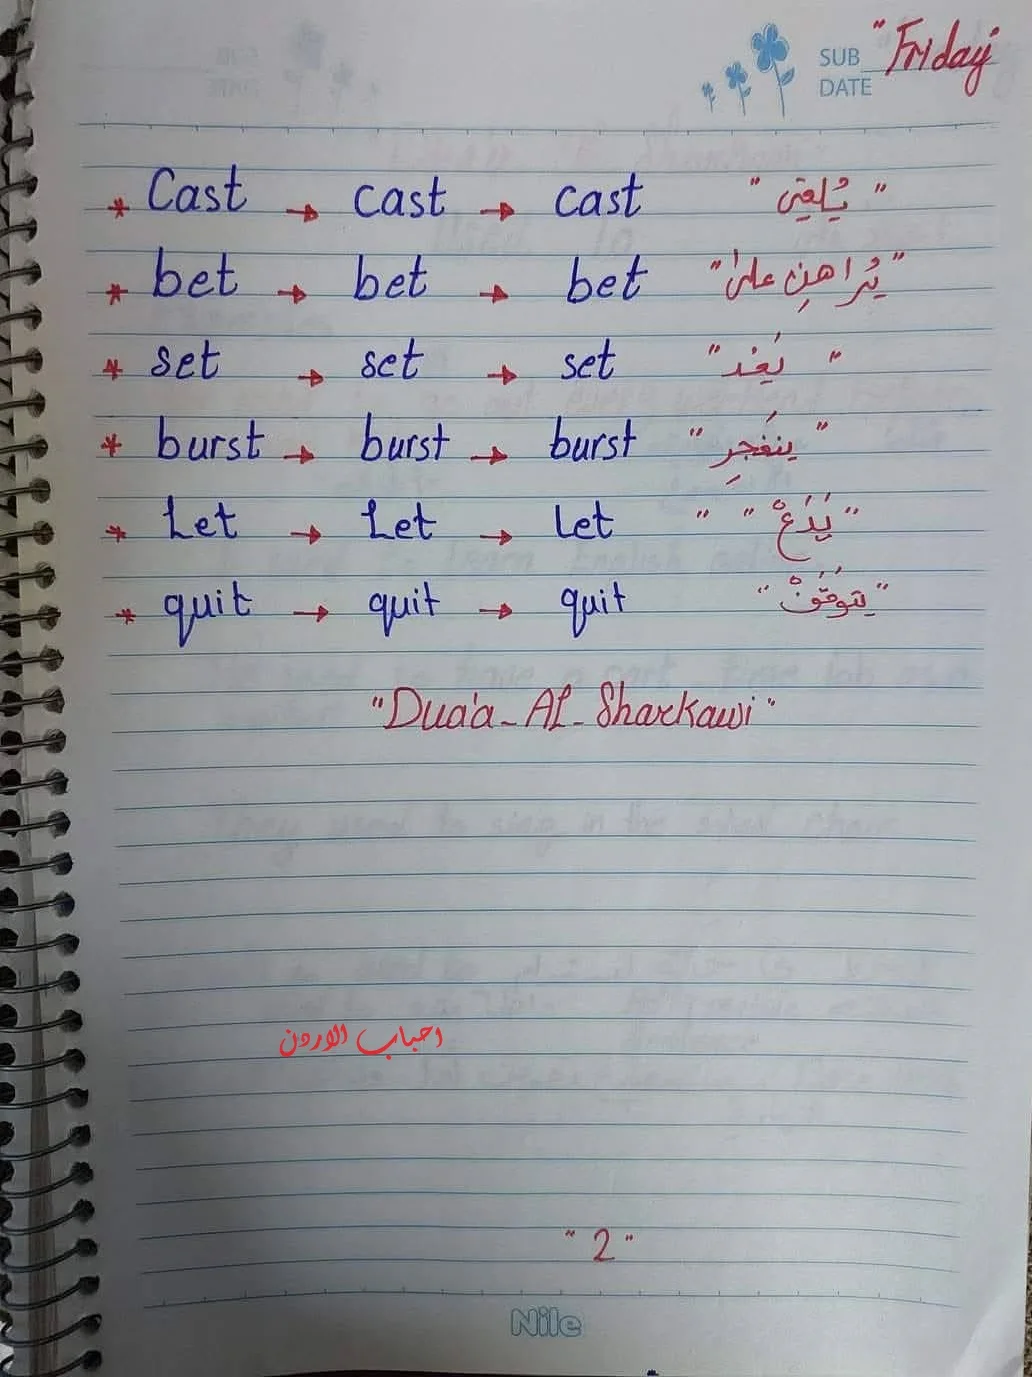 SUB "Friday"
DATE
* Cast → cast → cast "يُلقِي"
* bet → bet → bet "يُراهِن على"
* set → set → set "يَعُد"
* burst → burst → burst "ينفَجِر"
* Let → Let → Let " "يَدَعْ"
* quit → quit → quit "يتوقَفُ"
"Dua'a - Al - Sharkawi"
احباب الاردن
"2"
Nile